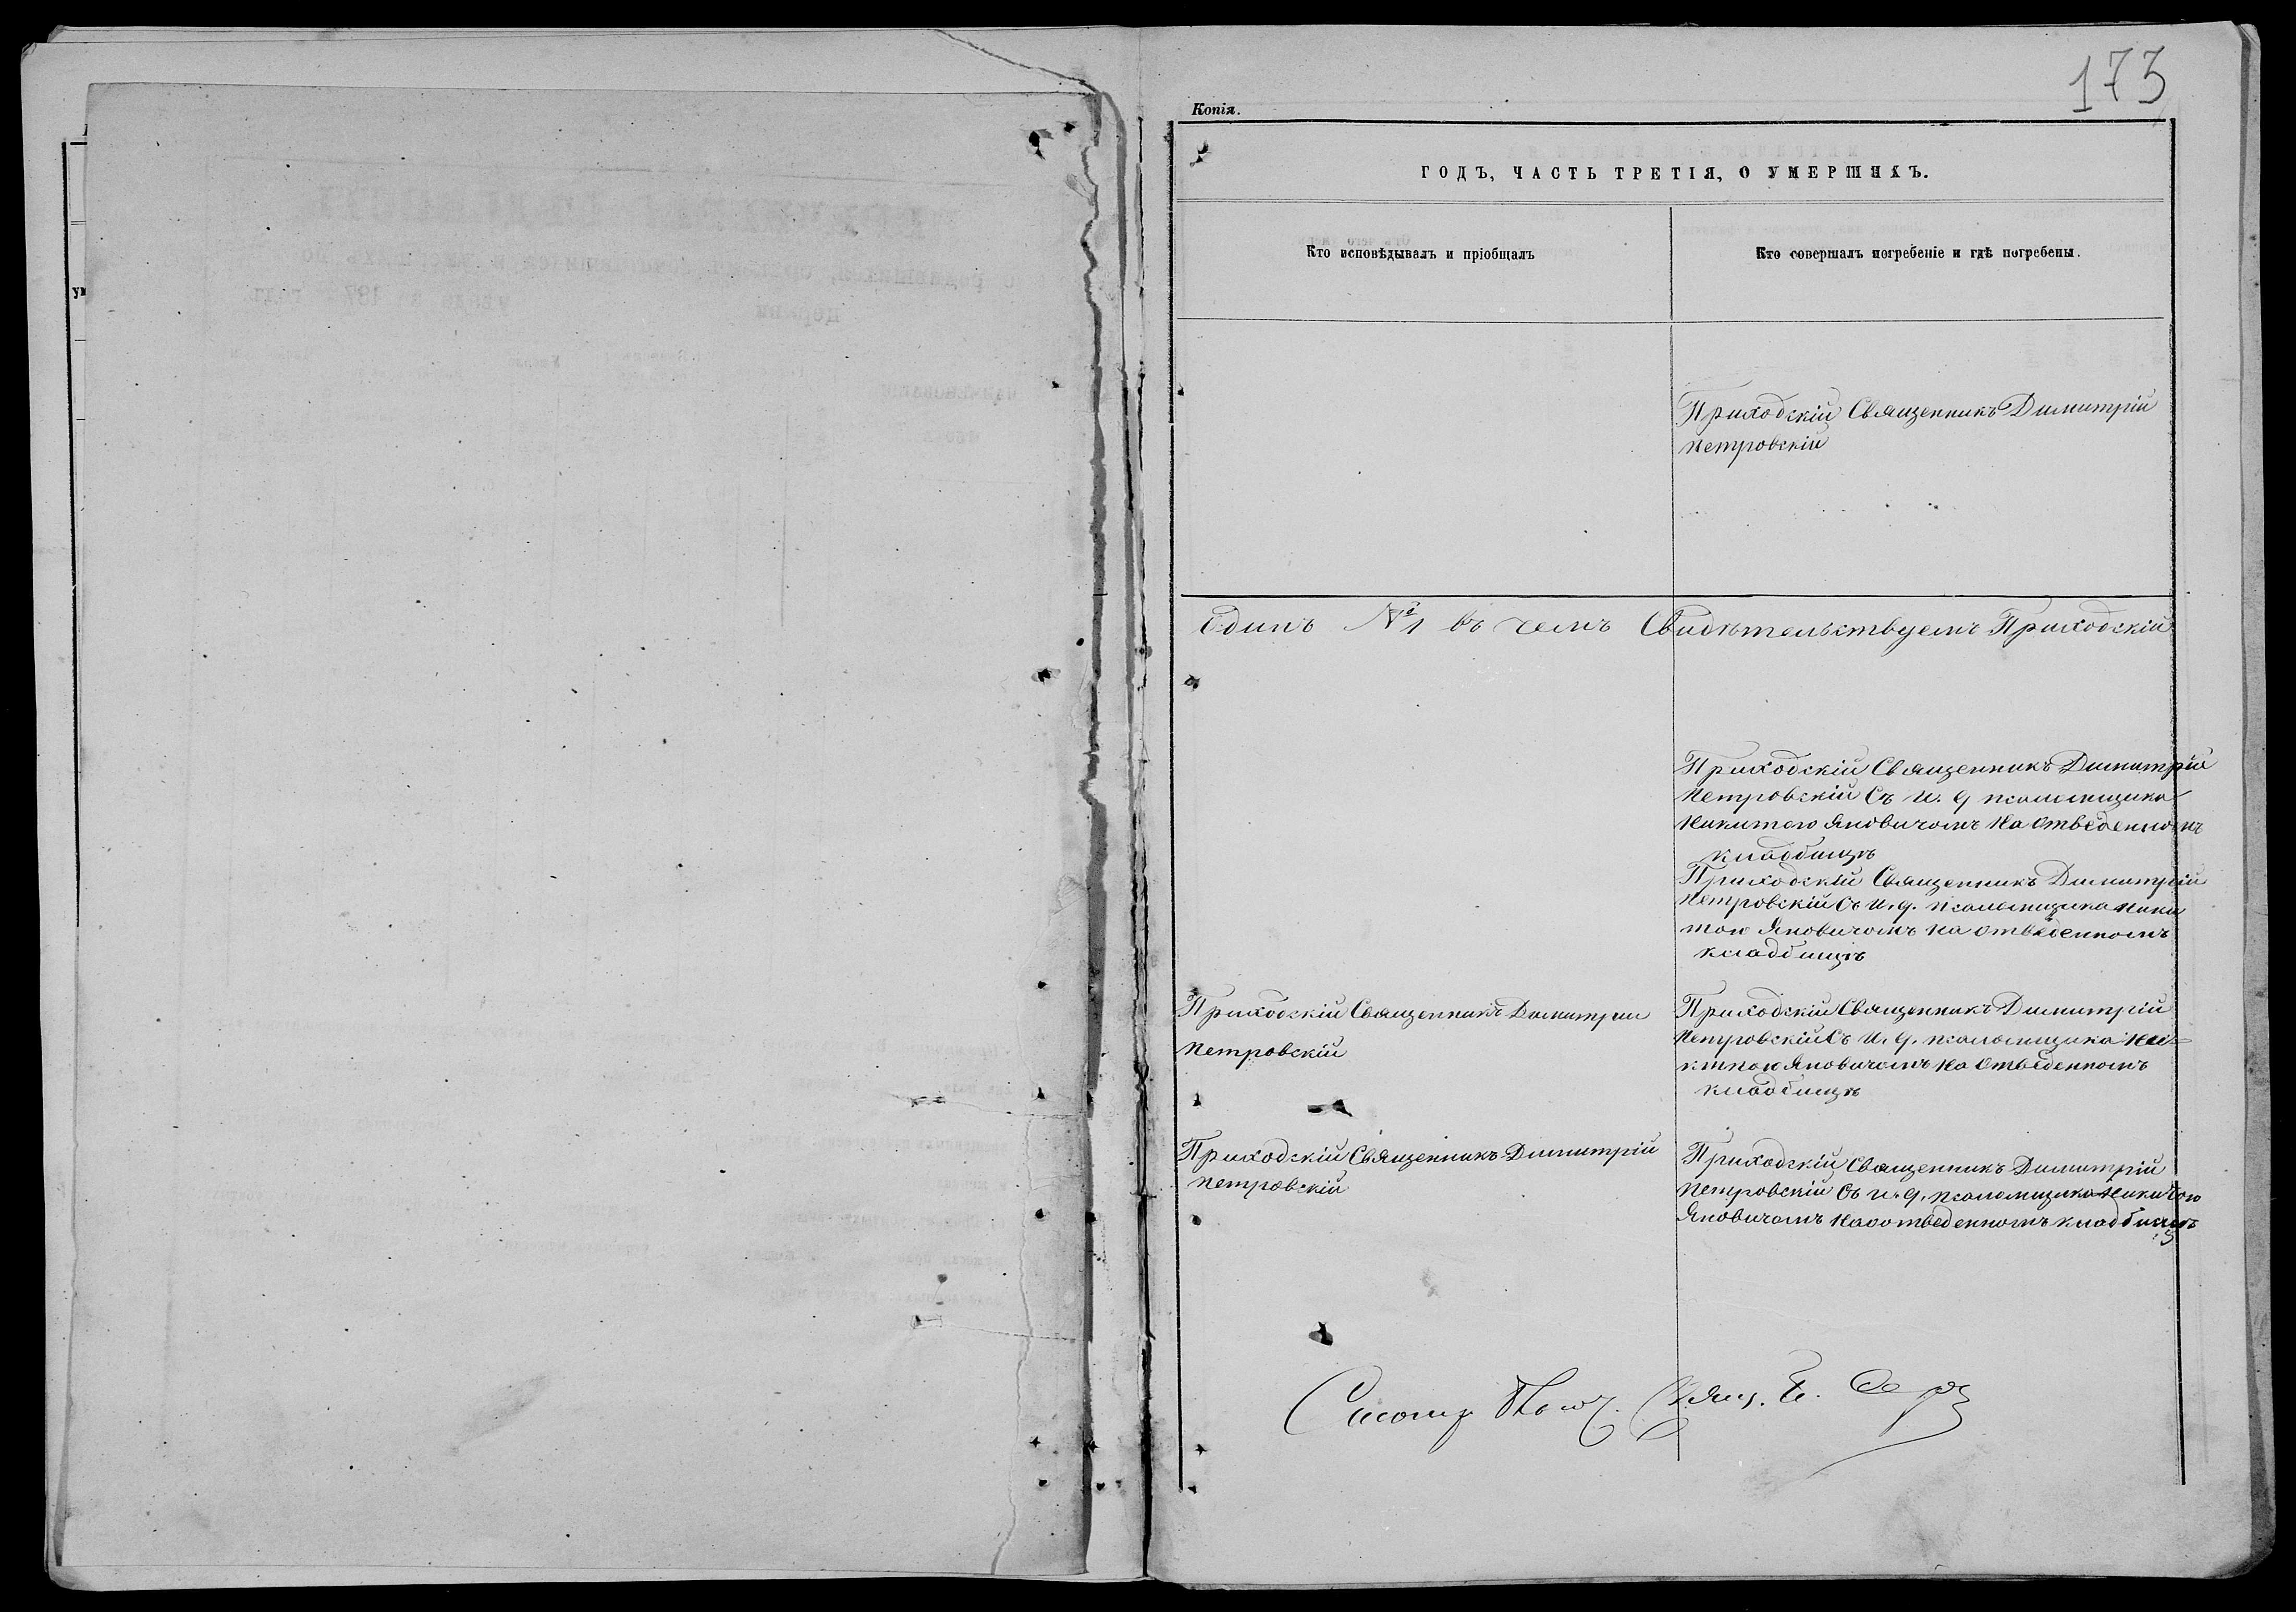 173
Копія.
ГОДЪ, ЧАСТЬ ТРЕТІЯ, О УМЕРШИХЪ.
Кто исповѣдывалъ и пріобщалъ
Кто совершалъ погребеніе и гдѣ погребены.
Приходскій Священникъ Димитрій
Петровскій
Единъ № 1 въ чемъ Свидѣтельствуемъ Приходскій
Приходскій Священникъ Димитрій
Петровскій Съ И. д псаломщика
Никитою Яновичомъ на Отведенномъ
кладбищѣ
Приходскій Священникъ Димитрій
Петровскій Съ И. д. псаломщика Ники
тою Яновичомъ на отведенномъ
кладбищѣ
Приходскій Священникъ Димитрій
Петровскій
Приходскій Священникъ Димитрій
Петровскій Съ И. д. псаломщика Ни=
китою Яновичомъ на Отведенномъ
кладбищѣ
Приходскій Священникъ Димитрій
Петровскій
Приходскій Священникъ Димитрій
Петровскій Съ и. д. псаломщика Никитою
Яновичомъ на отведенномъ кладбищѣ
Свящ.